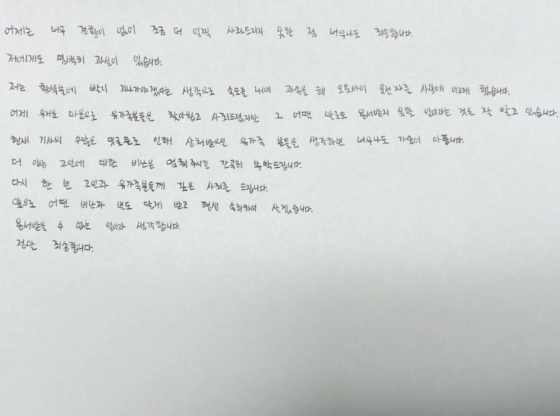 어제는 너무 경황이 없어 조금 더 일찍 사과드리지 못한 점 너무나도 죄송합니다.
저에게도 명백히 과실이 있습니다.
저는 황색불에 빨리 지나가야겠다는 생각으로 속도를 내며 과속을 해 오토바이 운전자를 사망에 이르게 했습니다.
어제 무거운 마음으로 유가족분들은 찾아뵙고 사죄드렸지만 그 어떤 말로도 용서받지 못할 일이라는 것을 잘 알고 있습니다.
현재 기사의 수많은 댓글들로 인해 상처받으실 유가족 분들을 생각하면 너무나도 가슴이 아픕니다.
더 이상 고인에 대한 비난은 멈춰주시길 간곡히 부탁드립니다.
다시 한 번 고인과 유가족분들께 깊은 사죄를 드립니다.
앞으로 어떤 비난과 벌도 달게 받고 평생 속죄하며 살겠습니다.
용서받을 수 없는 일이라 생각합니다.
정말 죄송합니다.